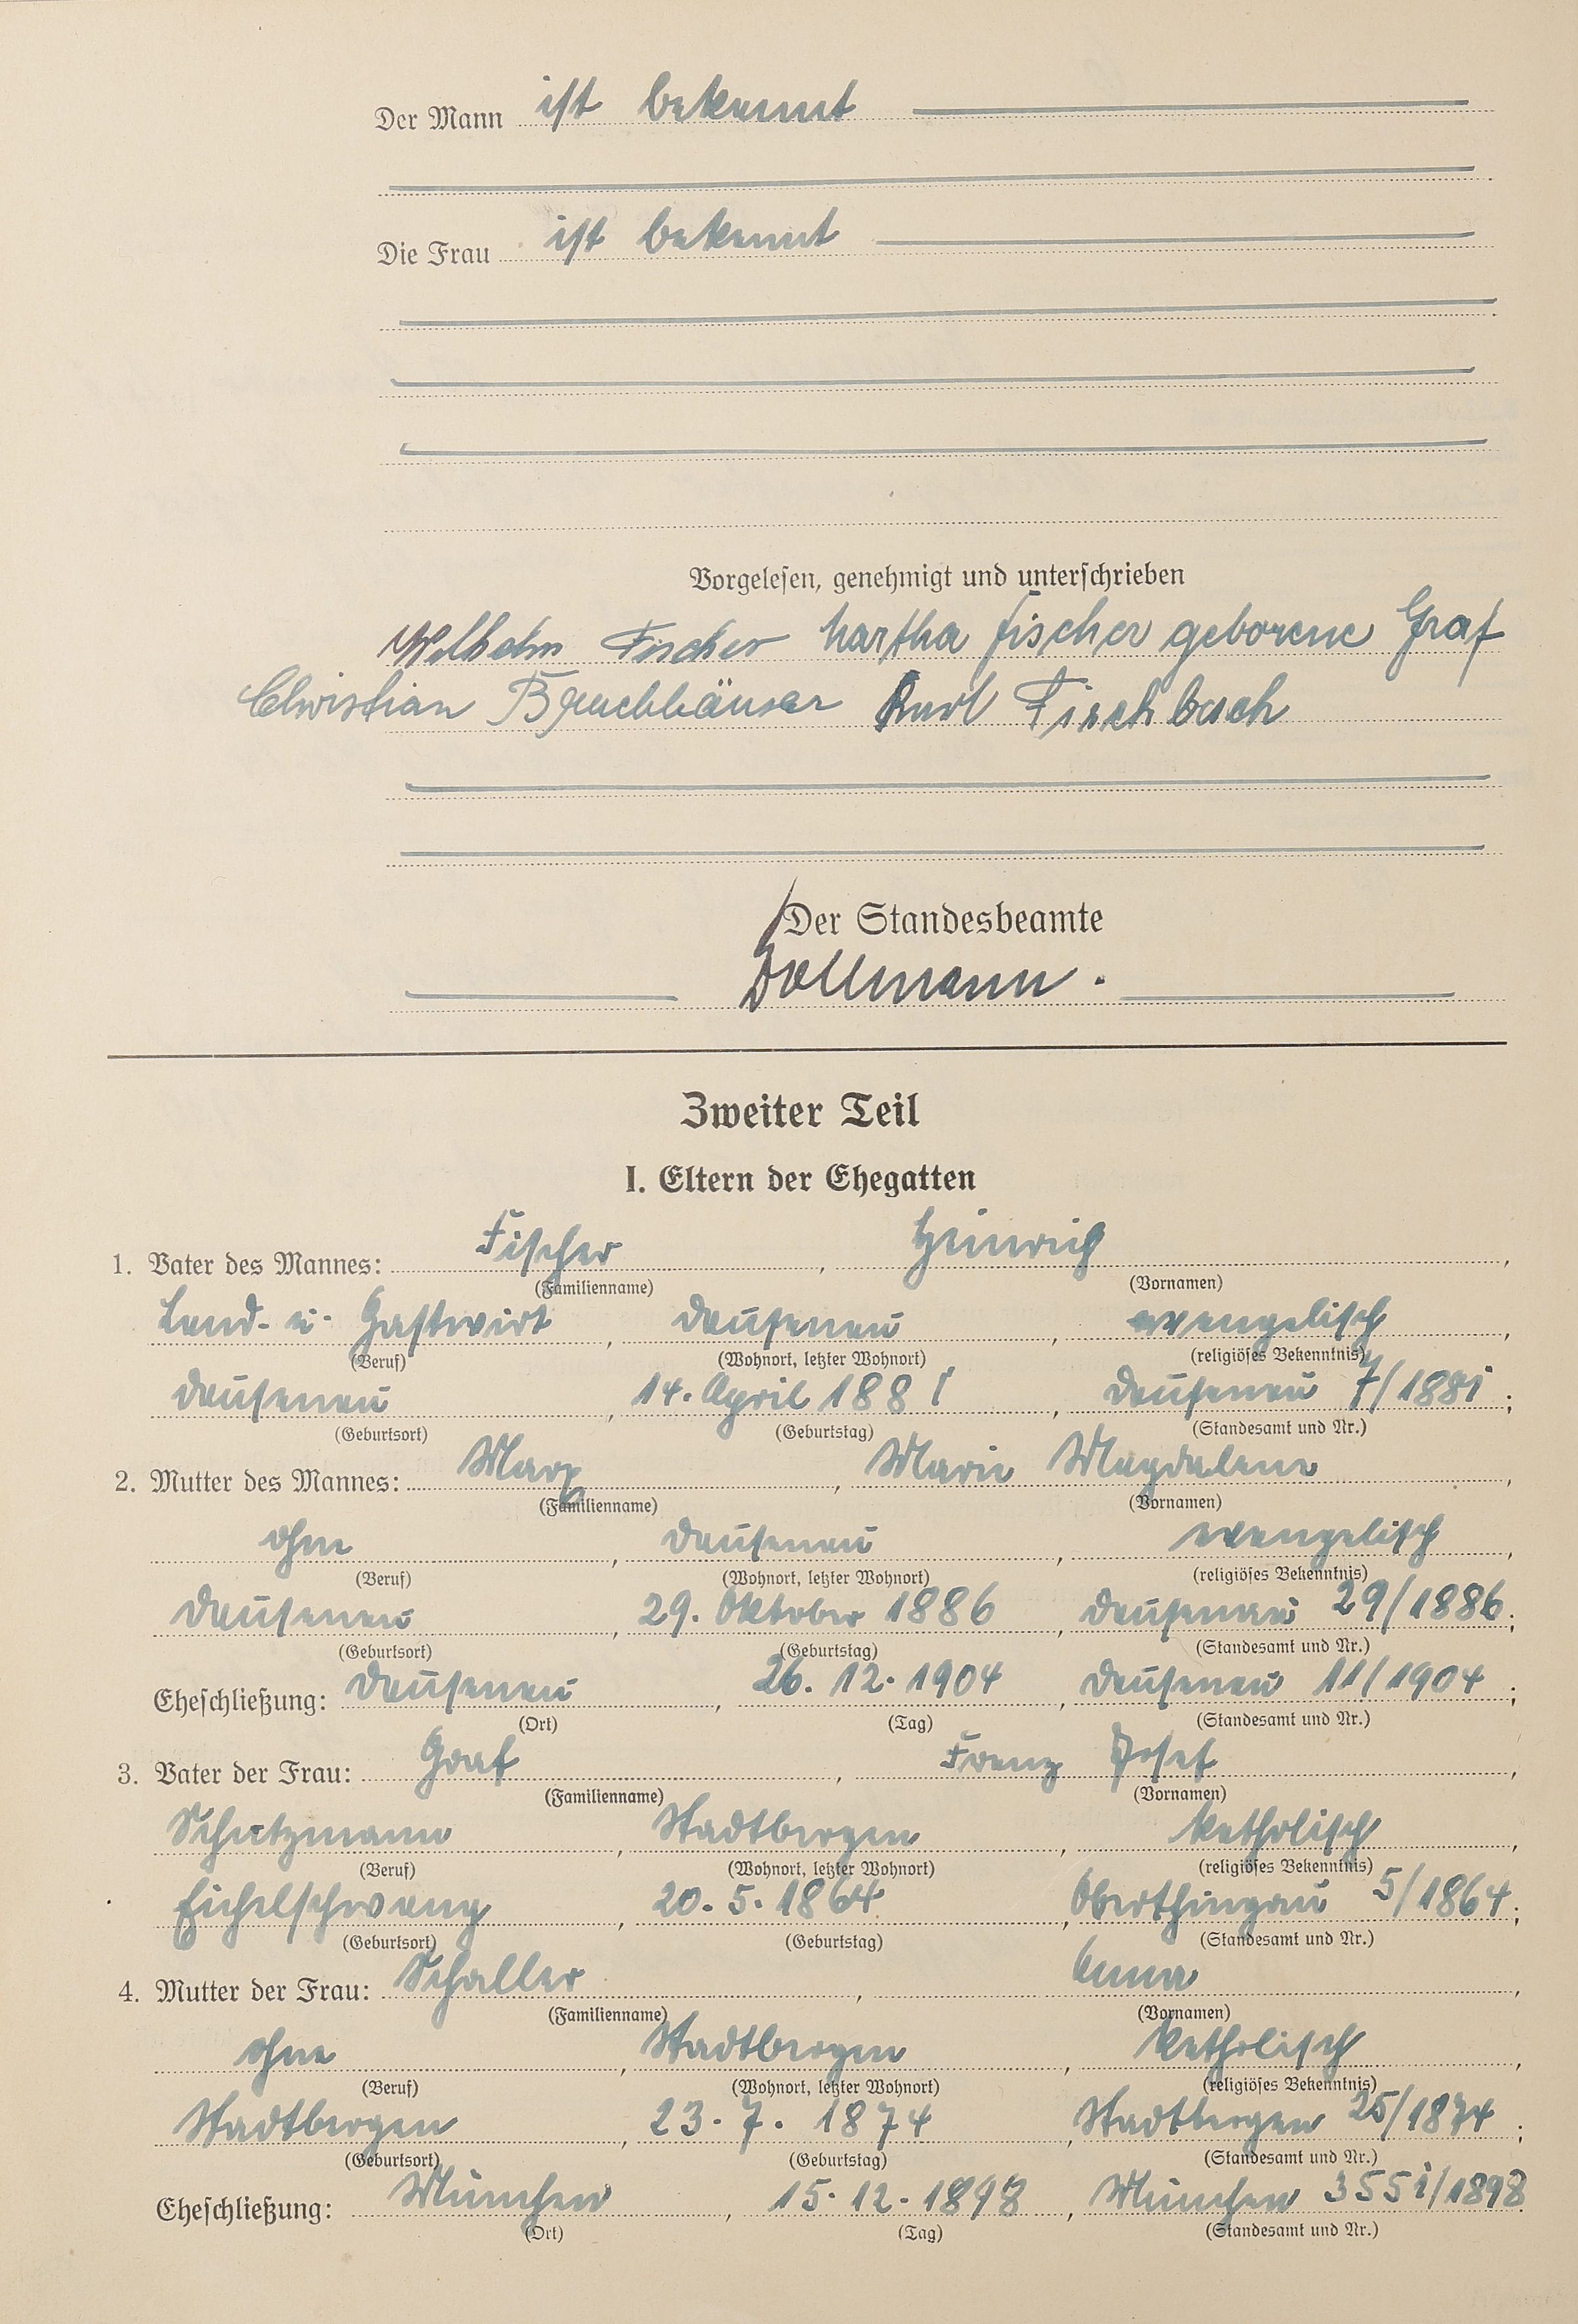 Der Mann ist bekannt
Die Frau ist bekannt
Vorgelesen, genehmigt und unterschrieben
Wilhelm Fischer Martha Fischer geborene Graf
Christian Bruchhäuser Karl Fischbach
Der Standesbeamte
Dollmann.
Zweiter Teil
I. Eltern der Ehegatten
1. Vater des Mannes: Fischer, Heinrich,
(Familienname) (Vornamen)
Land- u. Gastwirt, Dausenau, evangelisch,
(Beruf) (Wohnort, letzter Wohnort) (religiöses Bekenntnis)
Dausenau, 14. April 1881, Dausenau 7/1881;
(Geburtsort) (Geburtstag) (Standesamt und Nr.)
2. Mutter des Mannes: Marx, Marie Magdalene,
(Familienname) (Vornamen)
ohne, Dausenau, evangelisch,
(Beruf) (Wohnort, letzter Wohnort) (religiöses Bekenntnis)
Dausenau, 29. Oktober 1886, Dausenau 29/1886;
(Geburtsort) (Geburtstag) (Standesamt und Nr.)
Eheschließung: Dausenau, 26. 12. 1904, Dausenau 11/1904;
(Ort) (Tag) (Standesamt und Nr.)
3. Vater der Frau: Graf, Franz Josef,
(Familienname) (Vornamen)
Schutzmann, Stadtbergen, katholisch,
(Beruf) (Wohnort, letzter Wohnort) (religiöses Bekenntnis)
Eichelschwang, 20. 5. 1864, Oberthingau 5/1864;
(Geburtsort) (Geburtstag) (Standesamt und Nr.)
4. Mutter der Frau: Schaller, Anna,
(Familienname) (Vornamen)
ohne, Stadtbergen, katholisch,
(Beruf) (Wohnort, letzter Wohnort) (religiöses Bekenntnis)
Stadtbergen, 23. 7. 1874, Stadtbergen 25/1874;
(Geburtsort) (Geburtstag) (Standesamt und Nr.)
Eheschließung: München, 15. 12. 1898, München 3551/1898
(Ort) (Tag) (Standesamt und Nr.)